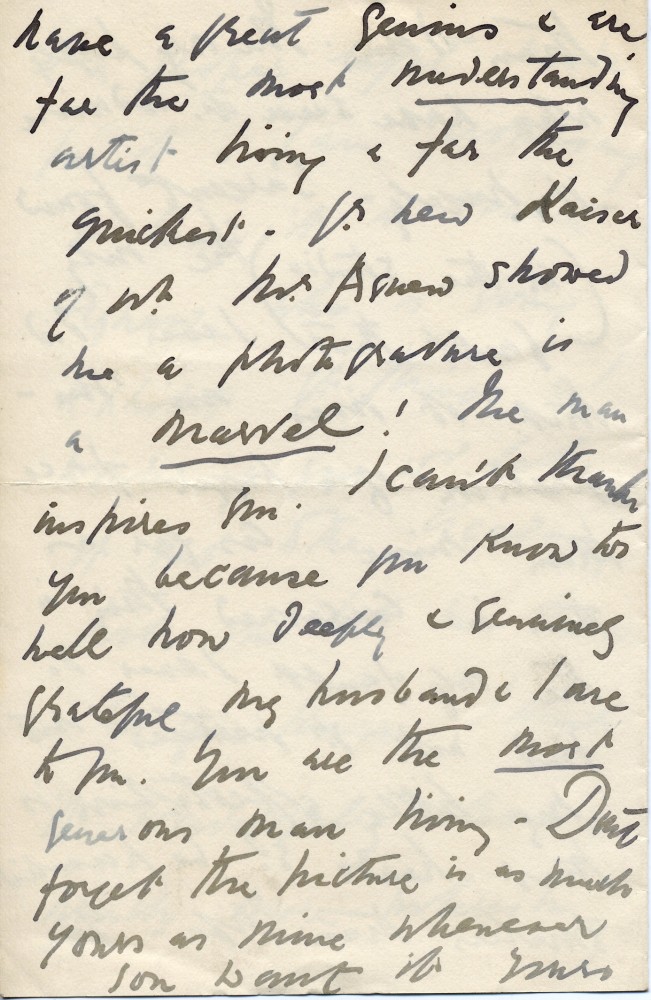 have a great genius & are
far the most understanding
artist living & far the
quickest. Yr new Kaiser
of wh. Mr. Agnew showed
me a photogravure is
a marvel! The man
inspires you. I can't thank
you because you know too
well how deeply & genuinely
grateful my husband & I are
to you. You are the most
generous man living - Dont
forget the picture is as much
yours as mine whenever
you want it yours